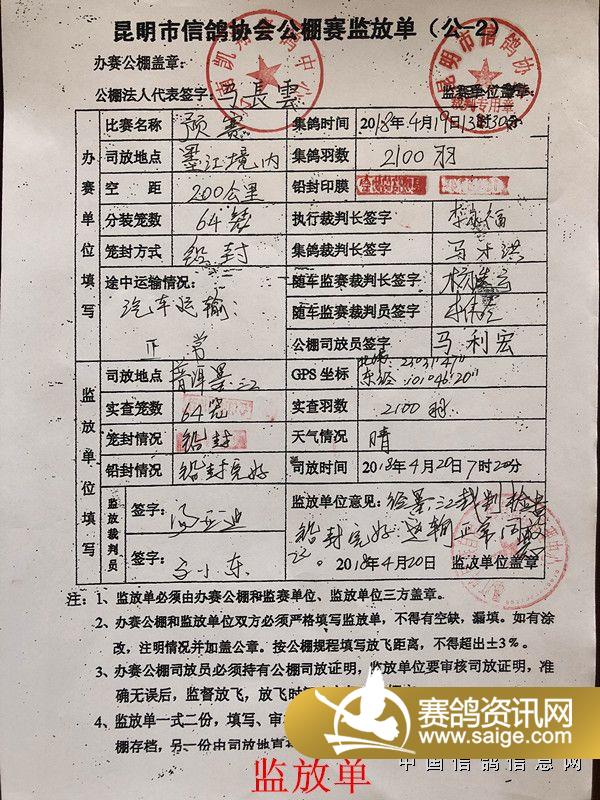 昆明市信鸽协会公棚赛监放单（公-2）
办赛公棚盖章：
公棚法人代表签字：马長雲 监赛单位盖章：
裁判专用章
办赛单位填写
比赛名称 预赛 集鸽时间 2018年4月19日13时30分
司放地点 墨江境内 集鸽羽数 2100羽
空 距 200公里 铅封印膜
分装笼数 64笼 执行裁判长签字
笼封方式 铅封 集鸽裁判长签字 马才洪
途中运输情况： 随车监赛裁判长签字
汽车运输 随车监放裁判员签字
正常 公棚司放员签字 马利宏
监放单位填写
司放地点 普洱墨江 GPS 坐标 北纬 23°31′47″
东经:101°46′20″
实查笼数 64笼 实查羽数 2100羽
笼封情况 铅封 天气情况 晴
铅封情况 铅封完好 司放时间 2018年4月20日7时20分
监放裁判员
签字： 监放单位意见：经墨江裁判检查
铅封完好 运输正常 同意
签字： 2018年4月20日 监放单位盖章
注：1、监放单必须由办赛公棚和监赛单位、监放单位三方盖章。
2、办赛公棚和监放单位双方必须严格填写监放单，不得有空缺，漏填。如有涂
改，注明情况并加盖公章。按公棚规程填写放飞距离，不得超出±3％。
3、办赛公棚司放员必须持有公棚司放证明，监放单位要审核司放证明，准
确无误后，监督放飞，放飞时
4、监放单一式二份，填写、审
棚存档，另一份由司放地
赛鸽资讯网
www.saige.com
监放单
中国信鸽信息网